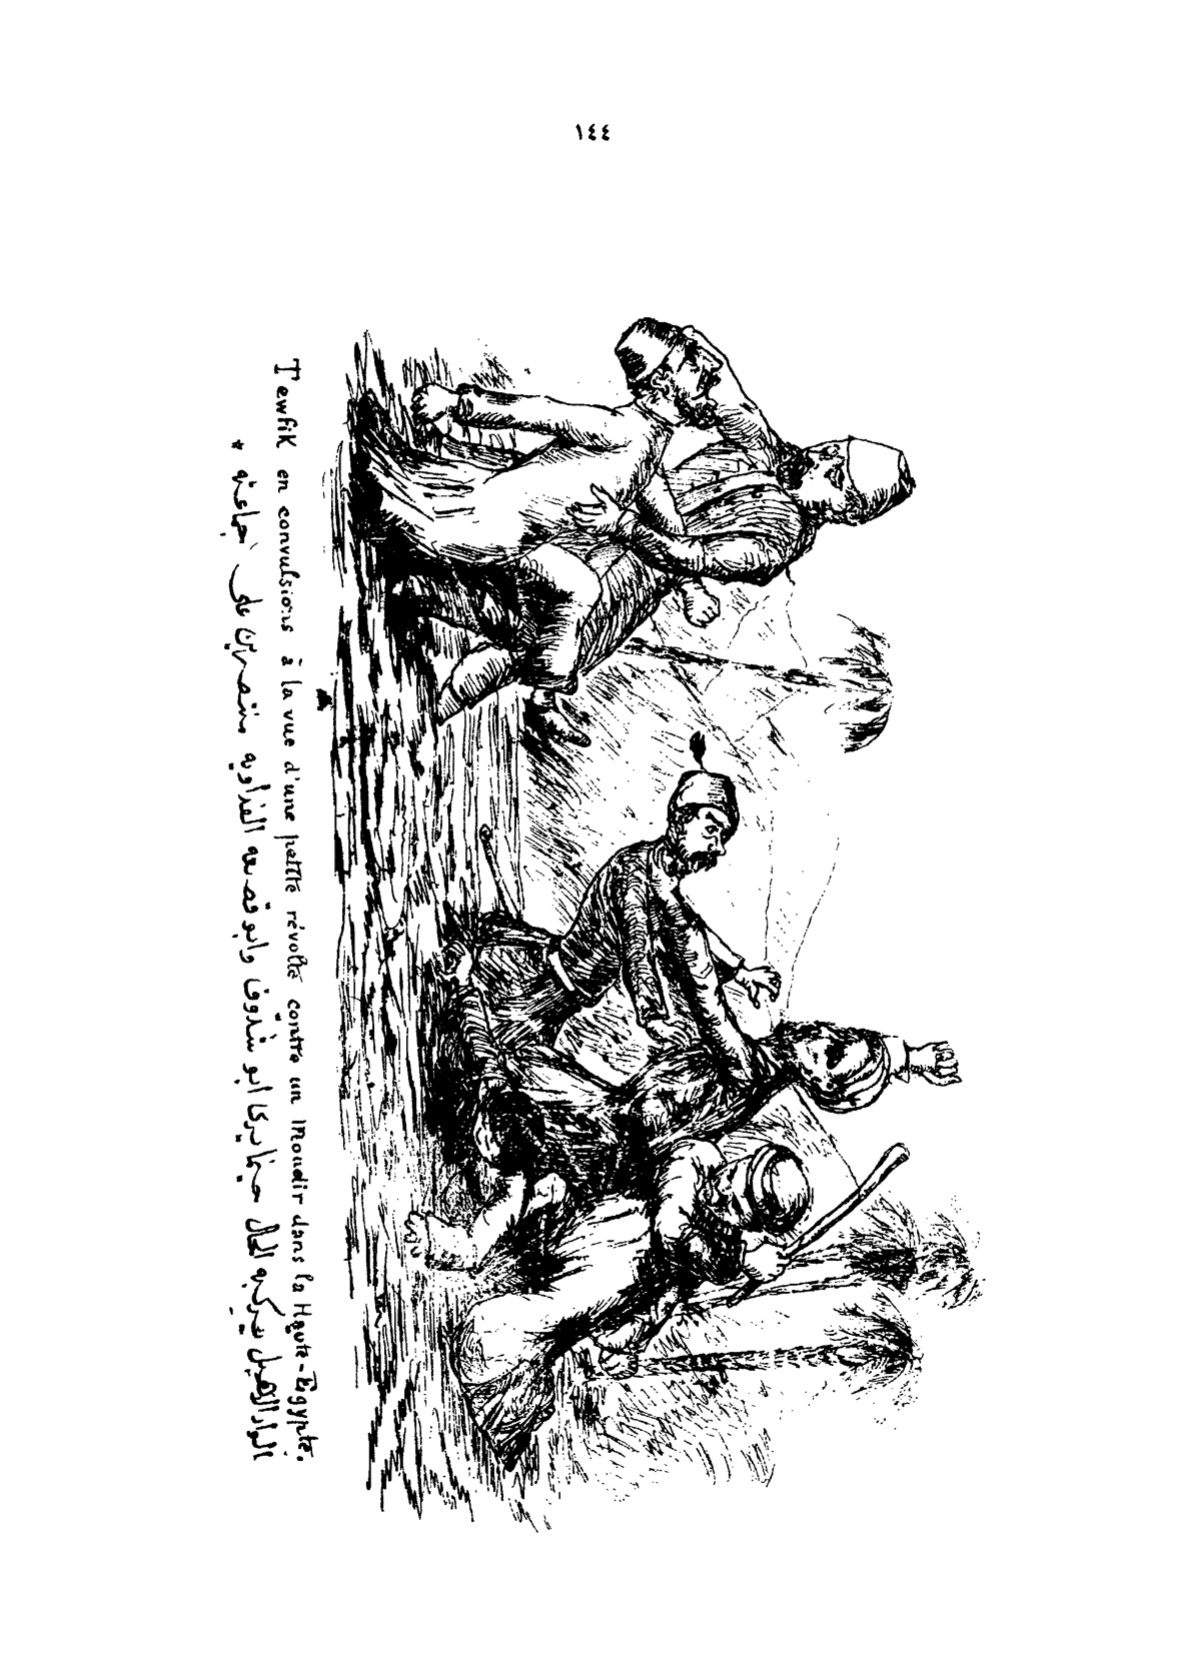 ١٤٤
Tewfik en convulsions à la vue d'une petite révolte contre un Moudir dans la Haute-Egypte.
الواد الاهبل يركبه الخال حينما يرى ابو شدوف وابو قصعه الفداويه منتصرين على جماعته *